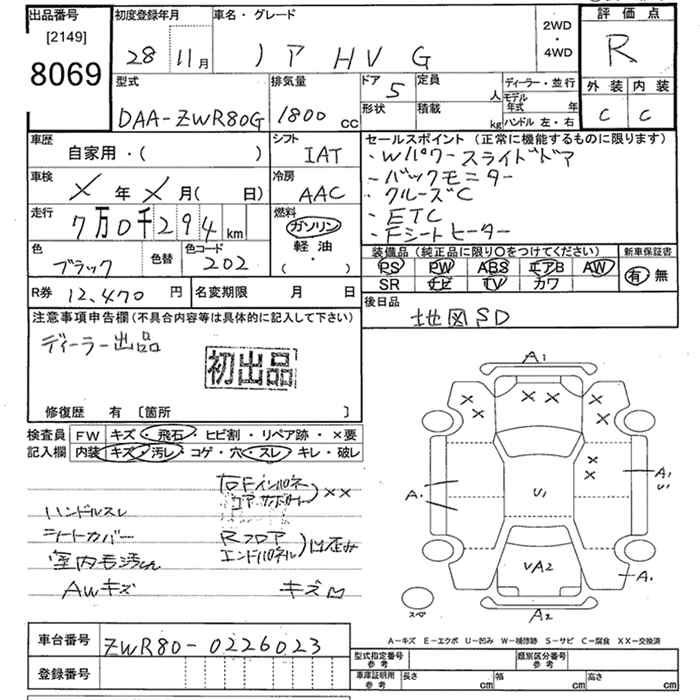 出品番号
[2149]
8069
初度登録年月
28 11月
車名・グレード
ノア HV G
2WD
・
4WD
評価点
R
外装 内装
C C
型式
DAA-ZWR80G
排気量
1800 cc
ドア 5
形状
定員 人
積載 kg
ディーラー・並行
モデル年式 年
ハンドル 左・右
車歴
自家用・( )
シフト
IAT
車検
× 年 × 月( 日)
冷房
AAC
走行
7万0千294km
燃料
ガソリン
軽油
( ・ )
色
ブラック
色替
色コード
202
セールスポイント (正常に機能するものに限ります)
・Wパワースライドドア
・バックモニター
・クルーズC
・ETC
・Fシートヒーター
装備品(純正品に限り○をつけてください) 新車保証書
PS PW ABS エアB AW
SR ナビ TV カワ
有 無
R券 12,470 円
名変期限 月 日
後日品
地図SD
注意事項申告欄(不具合内容等は具体的に記入して下さい)
ディーラー出品
初出品
修復歴 有 〔箇所 〕
検査員記入欄
FW キズ・飛石・ヒビ割・リペア跡・×要
内装 キズ・汚レ・コゲ・穴・スレ・キレ・破レ
右Fインパネ
コアサポート ××
ハンドルスレ
シートカバー
室内毛汚れ
AWキズ
Rフロア
エンドパネル 凹歪み
キズ凹
A1
× × × × × ×
×
×
A1
A1
U1
U1
VA2
A1
スペ
A2
A-キズ E-エクボ U-凹み W-補修跡 S-サビ C-腐食 XX-交換済
車台番号
ZWR80-0226023
登録番号
型式指定番号
参考
類別区分番号
参考
車庫証明用
参考
長さ cm
幅 cm
高さ cm